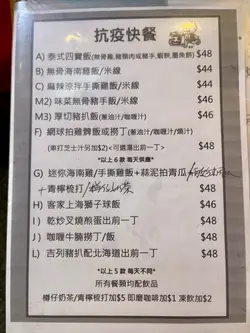 抗疫快餐
A) 泰式四寶飯(無骨雞,豬頸肉或豬手,蝦餅,墨魚餅) $48
B) 無骨海南雞飯/米線 $44
C) 麻辣涼拌手撕雞飯/米線 $44
M2) 味菜無骨豬手飯/米線 $46
M3) 厚切豬扒飯(蔥油汁/咖喱汁) $46
F) 網球拍雞髀飯或撈丁(蔥油汁/咖喱汁/燒汁)
(車打芝士汁另加$2)<可選湯出前一丁> $48
*以上6款每天供應*
G) 迷你海南雞/手撕雞飯+蒜泥拍青瓜
+青檸梳打/ $48
H) 客家上海獅子球飯 $46
I) 乾炒叉燒煎蛋出前一丁 $48
J) 咖喱牛腩撈丁/飯 $48
L) 吉列豬扒配北海道出前一丁 $48
*以上5款每天不同*
所有餐類均配飲品
樽仔奶茶/青檸梳打加$5 即磨咖啡加$1 凍飲加$2